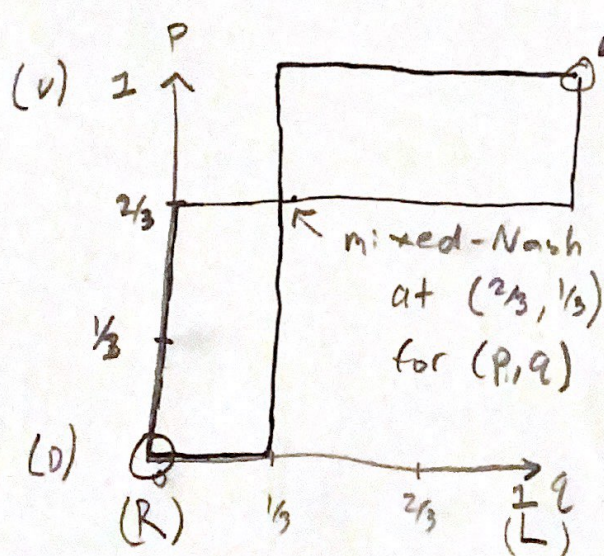 P
(U) 1
2/3
mixed-Nash
at (2/3, 1/3)
for (p,q)
1/3
(D)
(R) 1/3 2/3 1 q
(L)